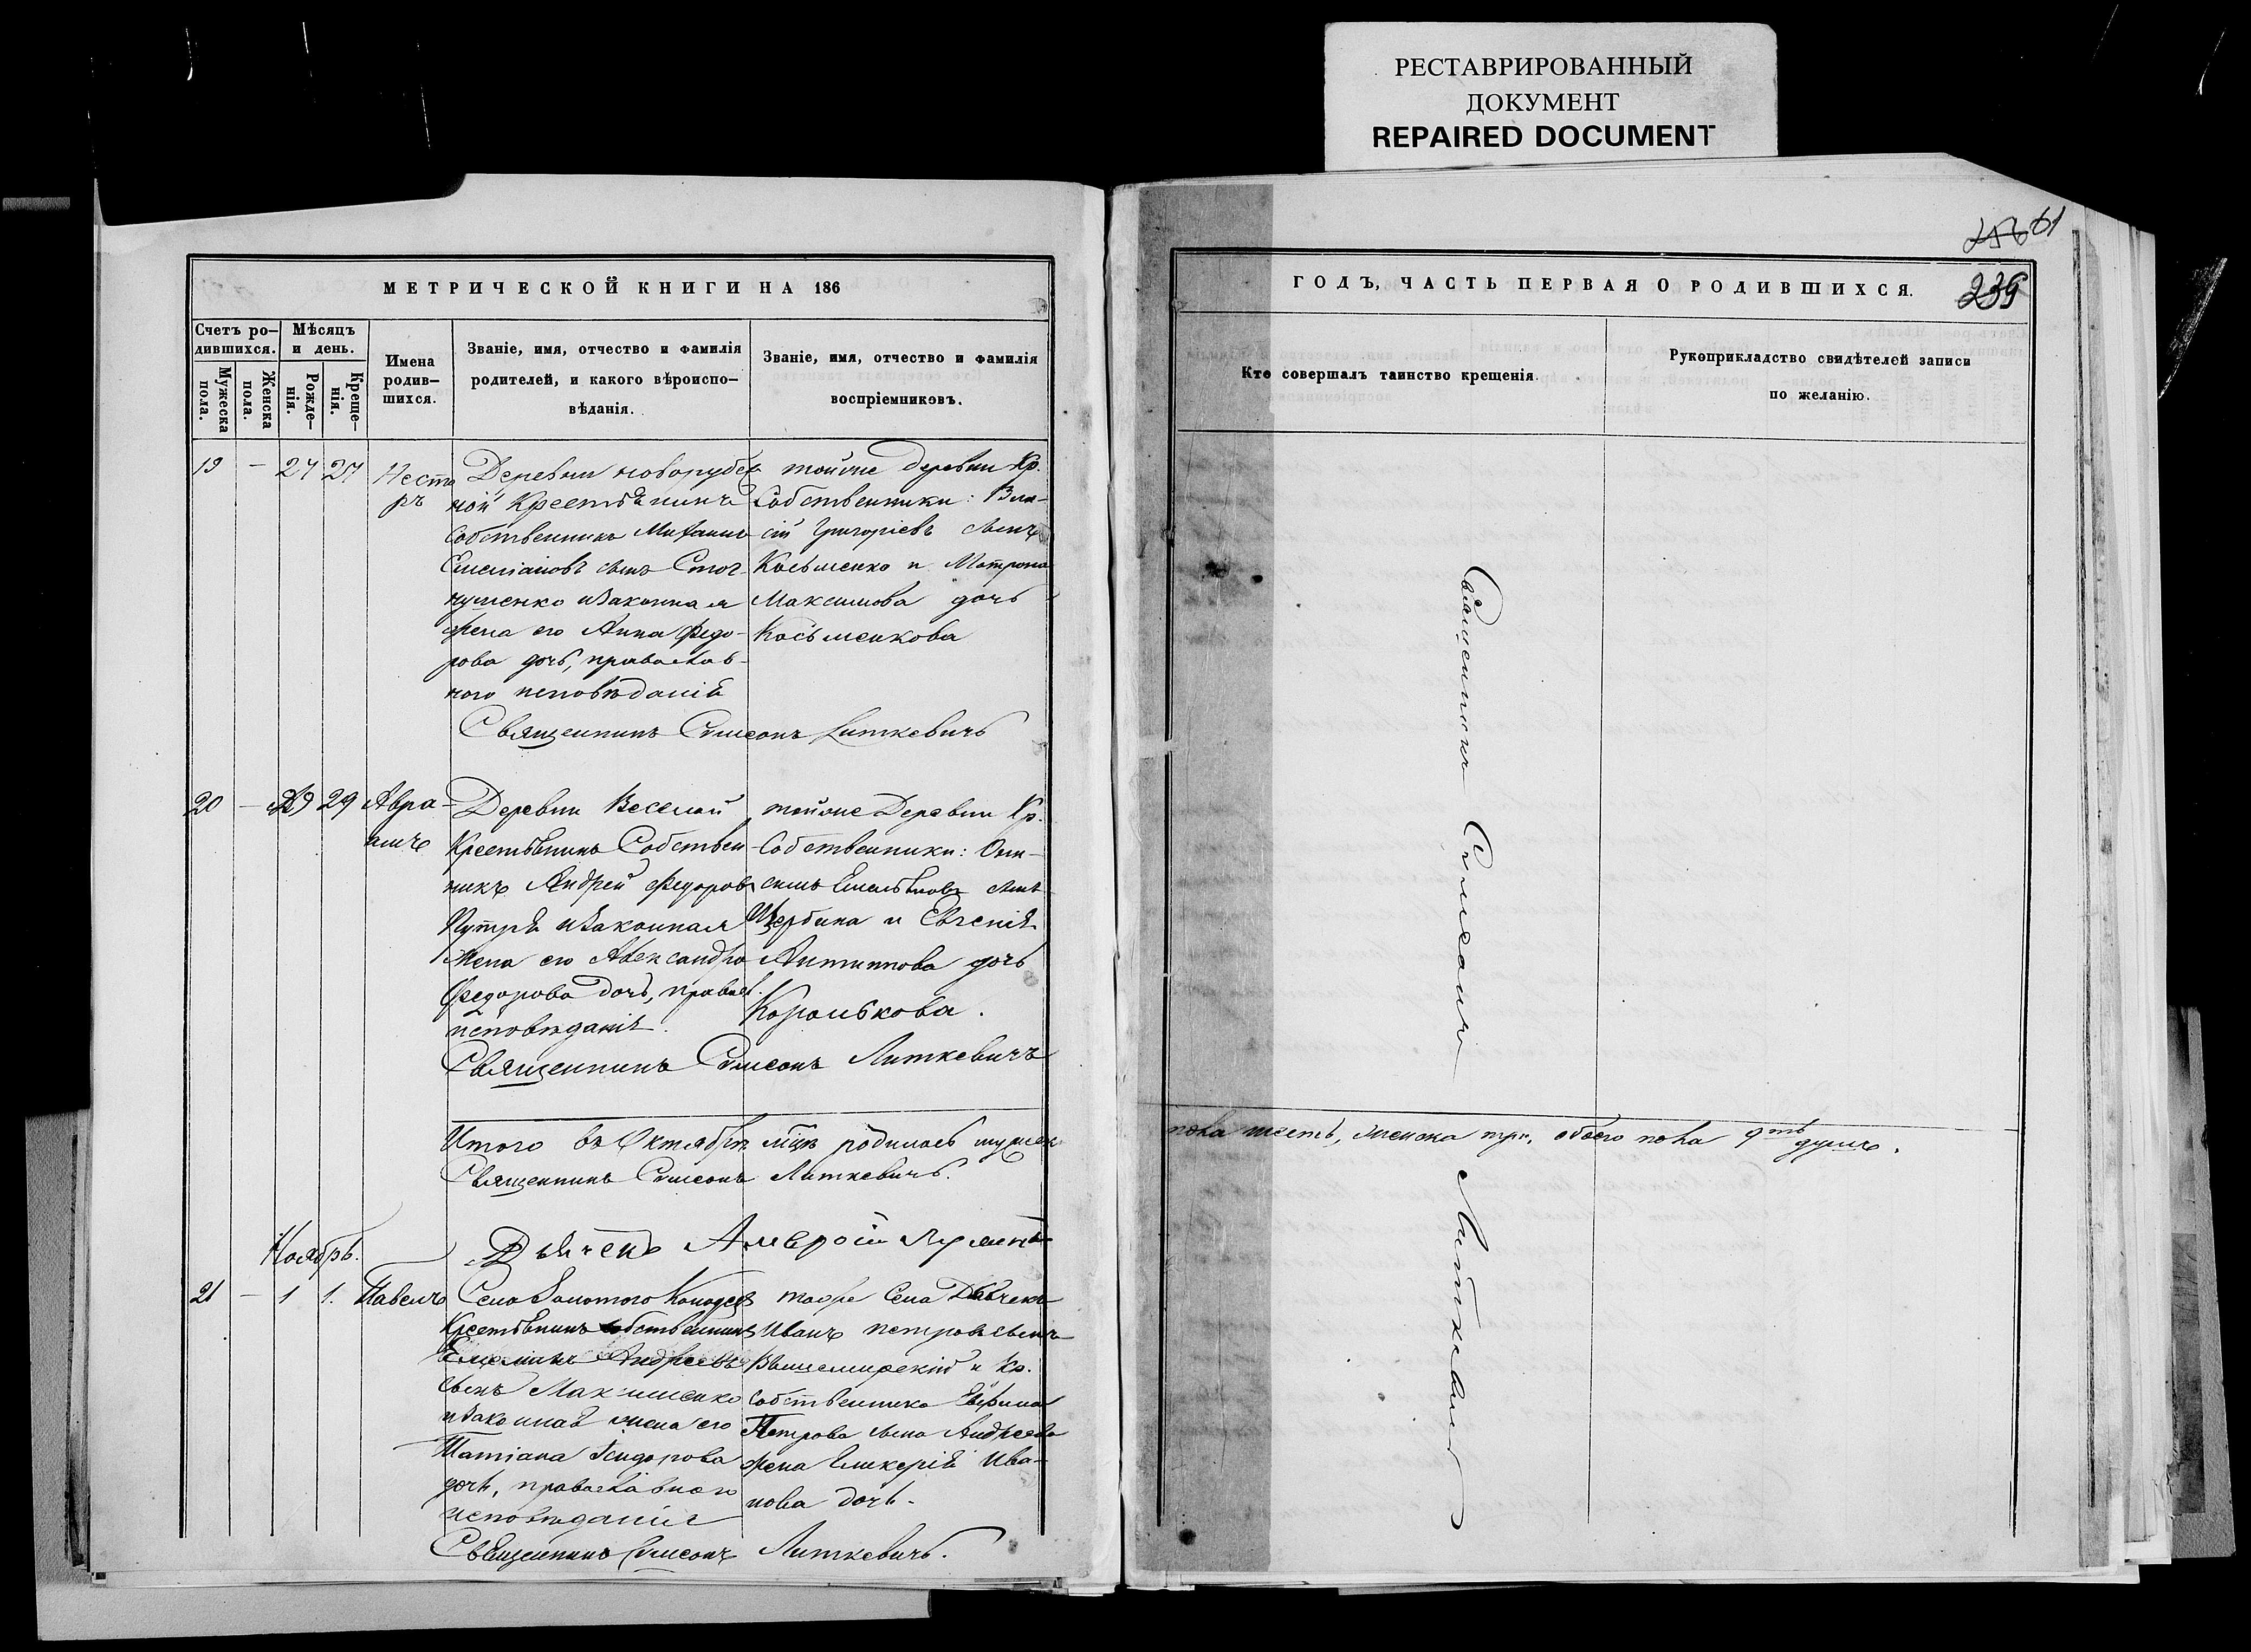 РЕСТАВРИРОВАННЫЙ
ДОКУМЕНТ
REPAIRED DOCUMENT
МЕТРИЧЕСКОЙ КНИГИ НА 186
Счетъ ро-
дившихся.
Мѣсяцъ
и день.
Мужеска
пола.
Женска
пола.
Рожде-
нія.
Креще-
нія.
Имена
родив-
шихся.
Званіе, имя, отчество и фамилія
родителей, и какого вѣроиспо-
вѣданія.
Званіе, имя, отчество и фамилія
воспріемниковъ.
19 - 27 27
Несто
ръ
Деревни новорубс
ной Крестьянинъ
Собственникъ Михаилъ
Емеліановъ сынъ
и законная
жена его Анна Федо-
рова дочь, православ-
ного исповѣданія
тойже деревни Кр.
Собственники: Вла-
сій Григоріевъ сынъ
Косьменко и Матрона
Максимова дочь
Косьменкова
Священникъ Симеонъ Литкевичъ
20 - 29 29
Авра-
амъ
Деревни Веселой
Крестьянинъ Собствен-
никъ Андрей Федоровъ
и законная
жена его Александра
Федорова дочь, правосл.
исповѣданія.
тойже Деревни Кр.
Собственники: Они-
симъ Емельяновъ сынъ
Щербина и Евгенія
Антипова дочь
Королькова.
Священникъ Симеонъ Литкевичъ
Итого въ Октябрѣ мцѣ родилось мужеск
Священникъ Симеонъ Литкевичъ.
Дьяченъ Амвросій
Ноябрь.
21 - 1 1. Павелъ
Села Золотого Колодезя
Крестьянинъ собственникъ
Андреевъ
сынъ Максименко
и законная жена его
Татіана Исидорова
дочь, православного
исповѣданія
тогоже Села Дьячекъ
Иванъ Петровъ сынъ
Вышемирскій и Кр.
собственника
Петрова сына Андреева
жена Гликерія Ива-
нова дочь.
Священникъ Симеонъ Литкевичъ.
61
239
ГОДЪ, ЧАСТЬ ПЕРВАЯ О РОДИВШИХСЯ.
Кто совершалъ таинство крещенія.
Рукоприкладство свидѣтелей записи
по желанію.
Священникъ Симеонъ Литкевичъ
пола шесть, женска три, обоего пола 9ть
душъ.